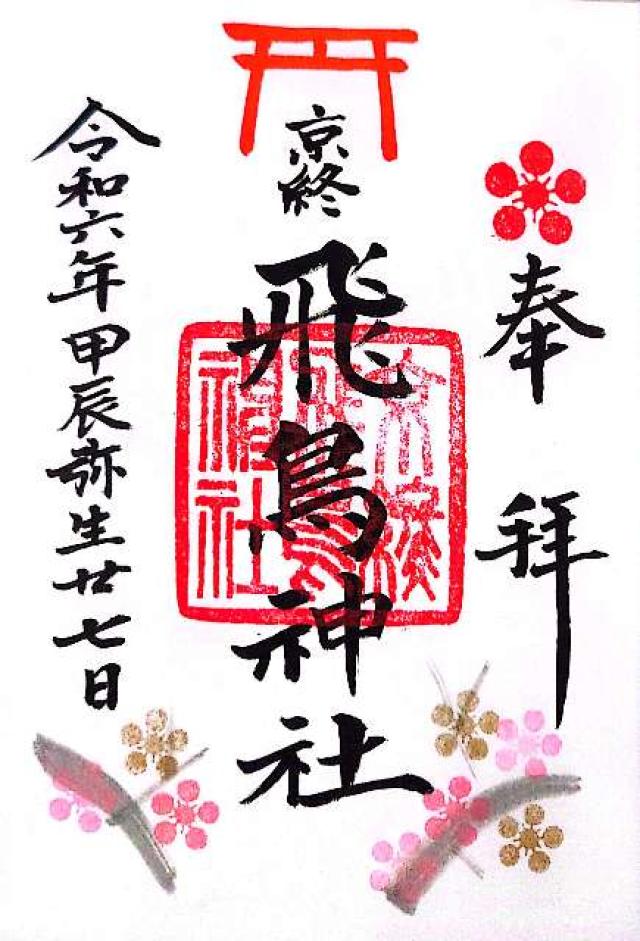 奉拝
京終
飛鳥神社
令和六年甲辰弥生廿七日
神社